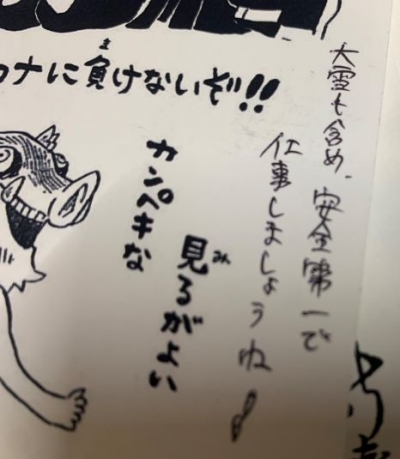 コナに負けないぞ!!
大雪も含め、安全第一で
仕事しましょうね!
カンペキな
見るがよい